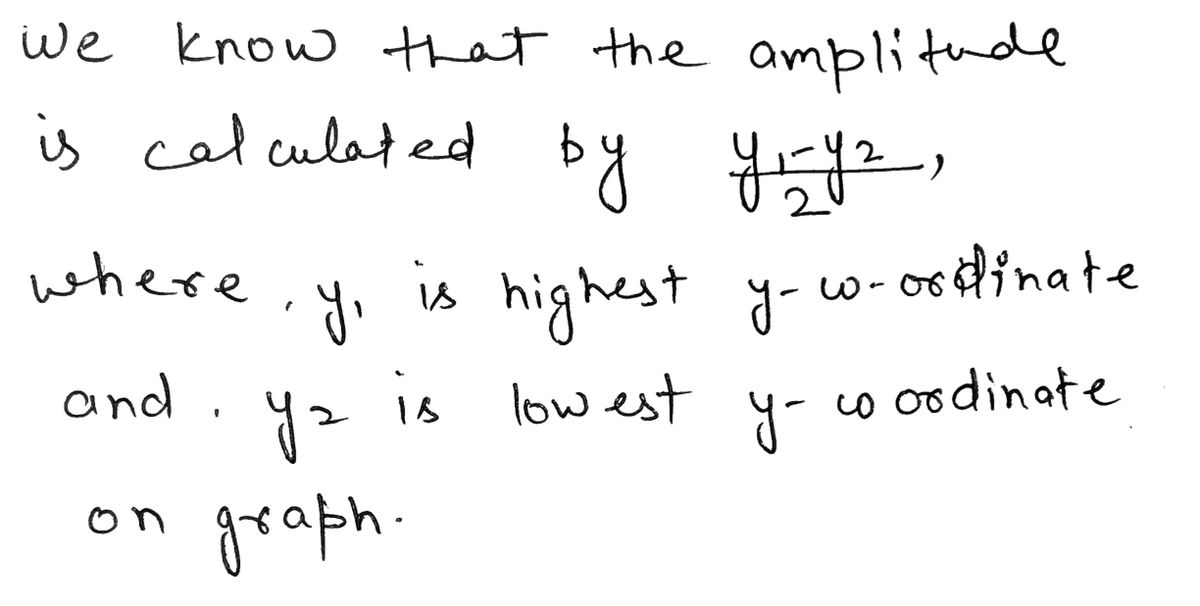 we know that the amplitude
is calculated by y₁-y₂/2,
where, y₁ is highest y-co-ordinate
and, y₂ is lowest y-coordinate
on graph.